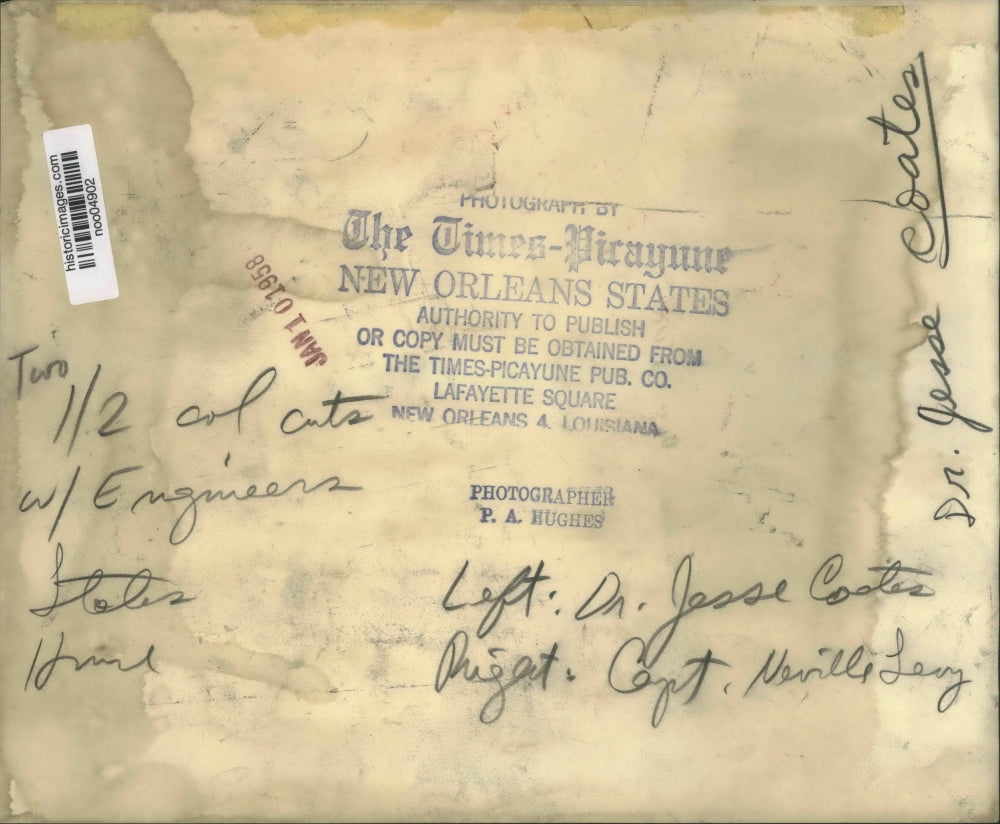 historicimages.com
noo04902
JAN 10 1958
PHOTOGRAPH BY
The Times-Picayune
NEW ORLEANS STATES
AUTHORITY TO PUBLISH
OR COPY MUST BE OBTAINED FROM
THE TIMES-PICAYUNE PUB. CO.
LAFAYETTE SQUARE
NEW ORLEANS 4, LOUISIANA
Two
1/2 col cuts
w/ Engineers
States
PHOTOGRAPHER
P. A. HUGHES
Left: Dr. Jesse Coates
Right: Capt. Neville Levy
Dr. Jesse Coates